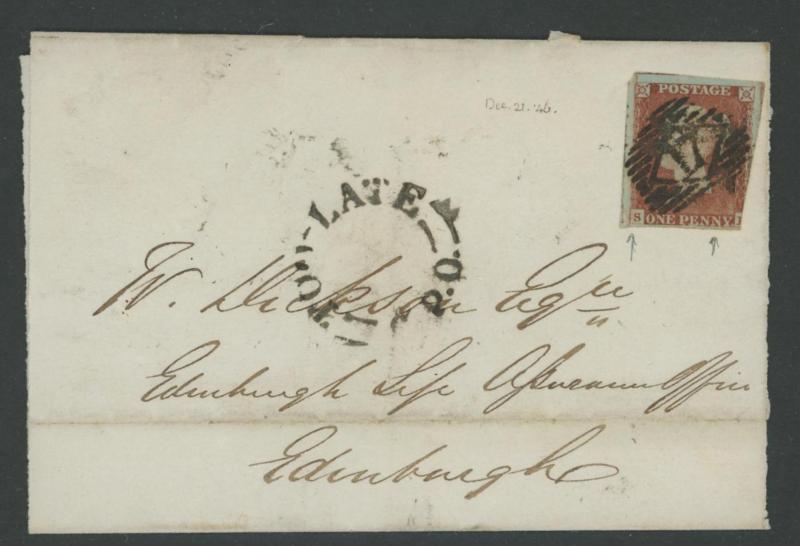 Dec. 21. '46.
POSTAGE
S ONE PENNY
TOO LATE
W. Dickson Esqre
Edinburgh Life Assurance Office
Edinburgh